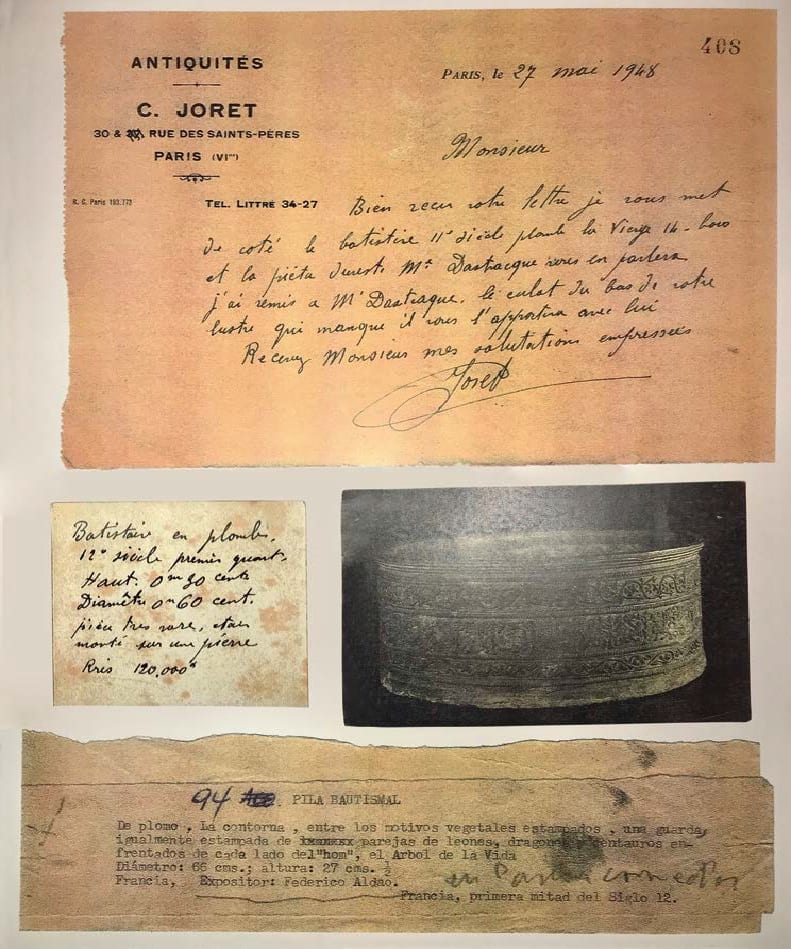 408
ANTIQUITÉS
C. JORET
30 & RUE DES SAINTS-PÈRES
PARIS (VIme)
R. C. Paris 193.773
TEL. LITTRÉ 34-27
PARIS, le 27 mai 1948
Monsieur
Bien recu votre lettre je vous met
de coté le batistère 11e siècle plomb la Vierge 14. bois
et la piéta Mr Dastracque vous en parlera
j'ai remis a Mr Dastracque. le culot du bas de votre
lustre qui manque il vous l'apportera avec lui
Recevez Monsieur mes salutations empressées
Joret
Batistaire en plomb.
12e siècle premier quart.
Haut. 0m 30 cent
Diamètre 0m 60 cent.
pièce tres rare, etai
monté sur une pierre
Prix 120.000
94 PILA BAUTISMAL
De plomo , La contorna , entre los motivos vegetales estampados , una guarda,
igualmente estampada de parejas de leones, dragones y centauros en-
frentados de cada lado del"hom", el Arbol de la Vida
Diámetro: 66 cms.; altura: 27 cms. ½
Francia, Expositor: Federico Aldao.
Francia, primera mitad del Siglo 12.